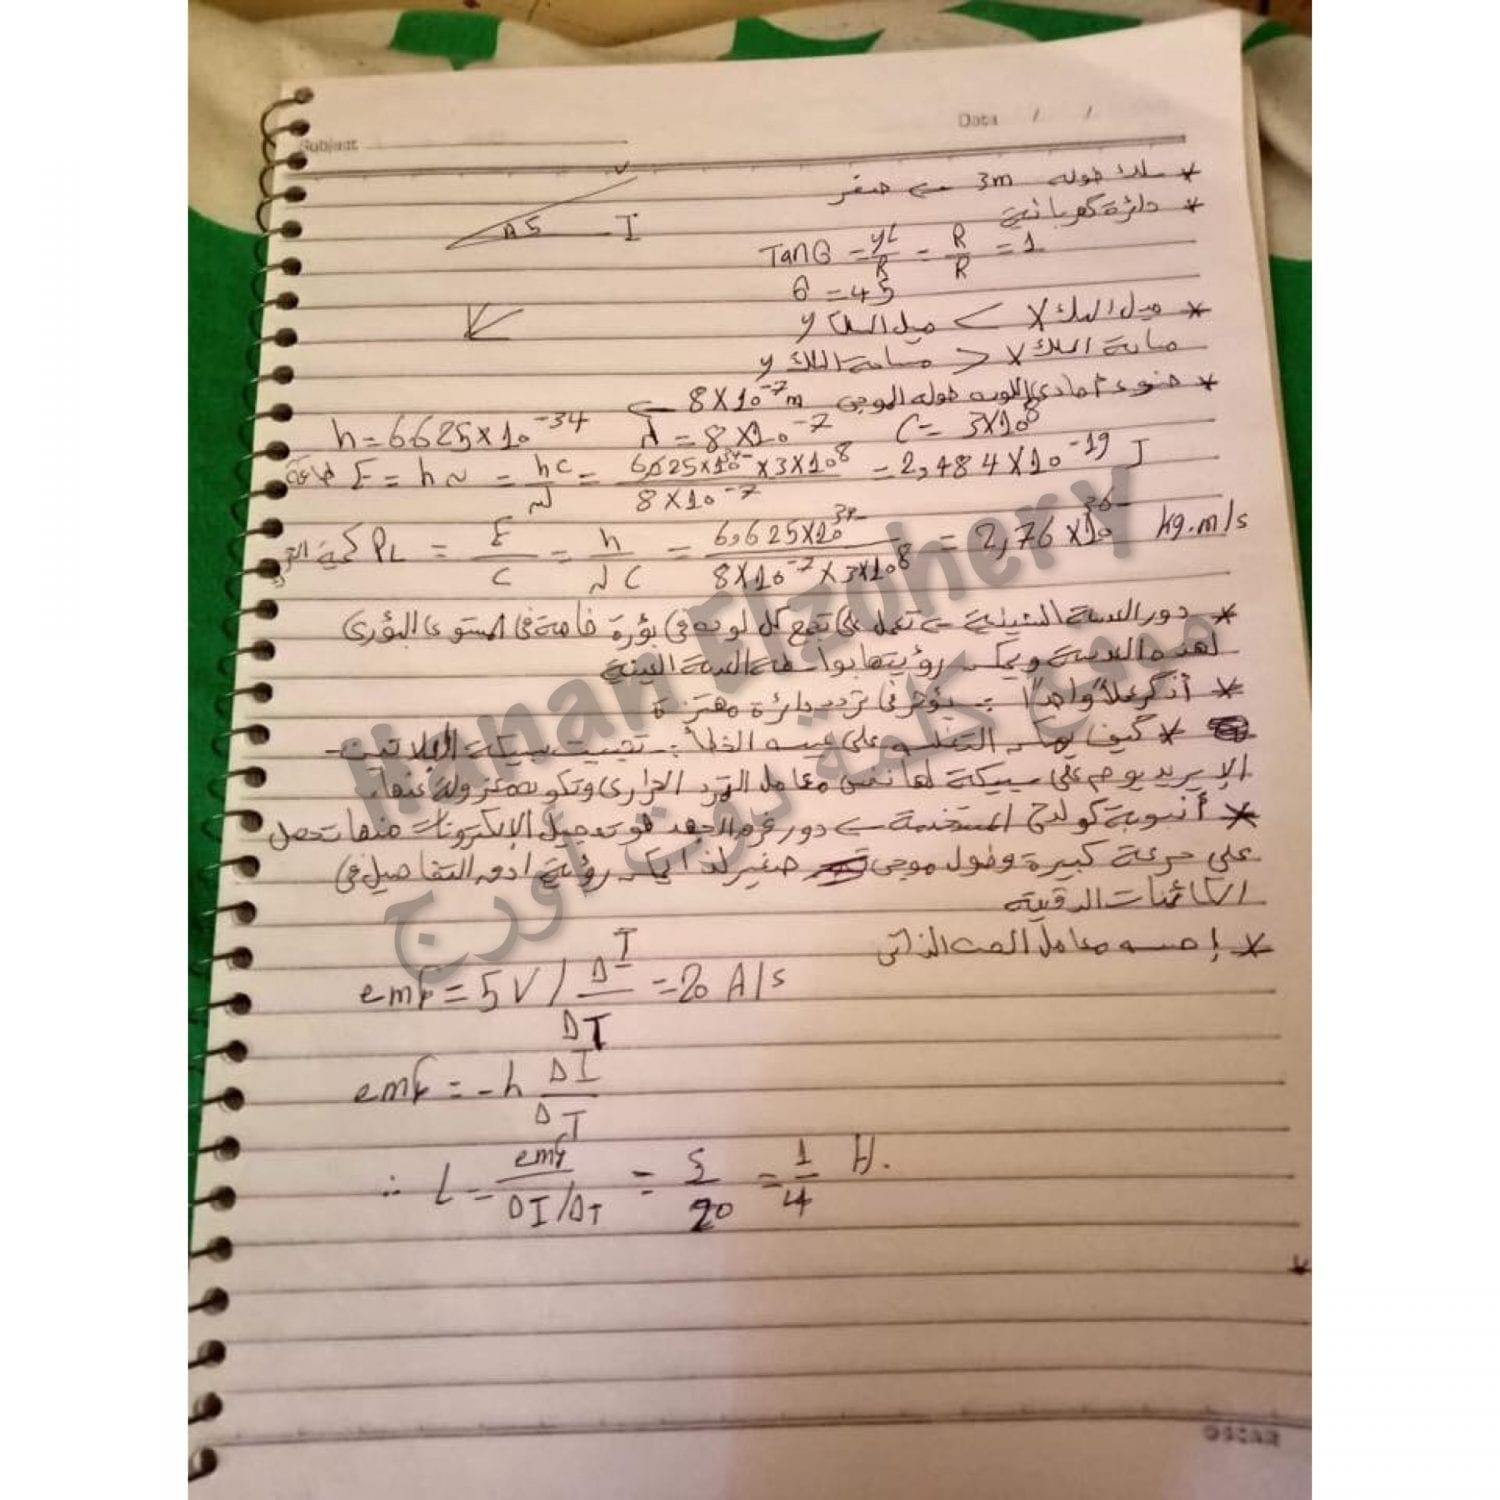 Subject
Data / /
* سلك طوله 3m ← صفر
* دائرة كهربائية
V
45 I
TanΘ = yL/R = R/R = 1
θ = 45
* ميل السلك X > ميل السلك y
مساحة السلك X < مساحة السلك y
* ضوء أحادي اللون طوله الموجى 8X10⁻⁷m ←
h = 6625X10⁻³⁴ λ = 8X10⁻⁷ C = 3X10⁸
طاقة E = hν = hc/λ = 6,625x10³⁴⁻ x3X10⁸ / 8X10⁻⁷ = 2,484X10⁻¹⁹ J
PL = E/C = h/λC = 6,625X10³⁴⁻ / 8X10⁻⁷x3X10⁸ = 2,76X10³⁶⁻ kg.m/s
* دور العدسة الشيئية ← تعمل على تجمع كل لون فى بؤرة خاصة فى المستوى البؤرى
لهذه العدسة ويمكن رؤيتها بواسطة العدسة العينية
* أذكر عاملاً واحداً :- يؤثر فى تردد دائرة مهتزة
* كيف يمكن التغلب على عيب الخطأ :- تثبيت سبيكة البلاتين -
الإيريديوم على سبيكة لها نفس معامل التمدد الحرارى وتكون معزولة عنها
* أنبوبة كولدج المستخدمة ← دور فرق الجهد هو تعجيل الإلكترونات منها تحصل
على سرعة كبيرة وطول موجى صغير لذا يمكن رؤية أدق التفاصيل فى
الكائنات الدقيقة
* إحسب معامل الحث الذاتى
emf = 5V / ΔI/ΔT = 20 A/s
emf = -h ΔI/ΔT
∴ L = emf/ΔI/ΔT = 5/20 = 1/4 H.
*
OSCAR
Hanan Elzohery
موقع كلمة دوت أورج